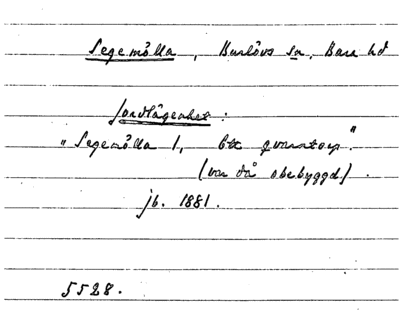 Segemölla, Burlövs sn, Bara hd
Jordlägenhet:
"Segemölla 1, Ett qvarntorp".
(var då obebyggd).
jb. 1881.
5528.